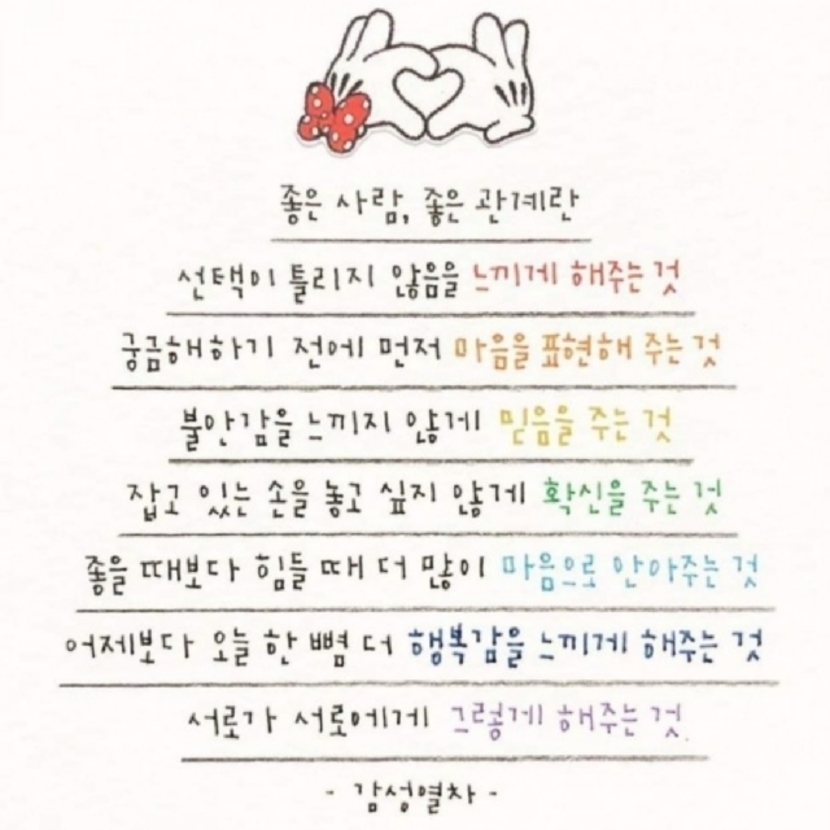 좋은 사람, 좋은 관계란
선택이 틀리지 않음을 느끼게 해주는 것
궁금해하기 전에 먼저 마음을 표현해 주는 것
불안감을 느끼지 않게 믿음을 주는 것
잡고 있는 손을 놓고 싶지 않게 확신을 주는 것
좋을 때보다 힘들 때 더 많이 마음으로 안아주는 것
어제보다 오늘 한 뼘 더 행복감을 느끼게 해주는 것
서로가 서로에게 그렇게 해주는 것.
- 감성열차 -